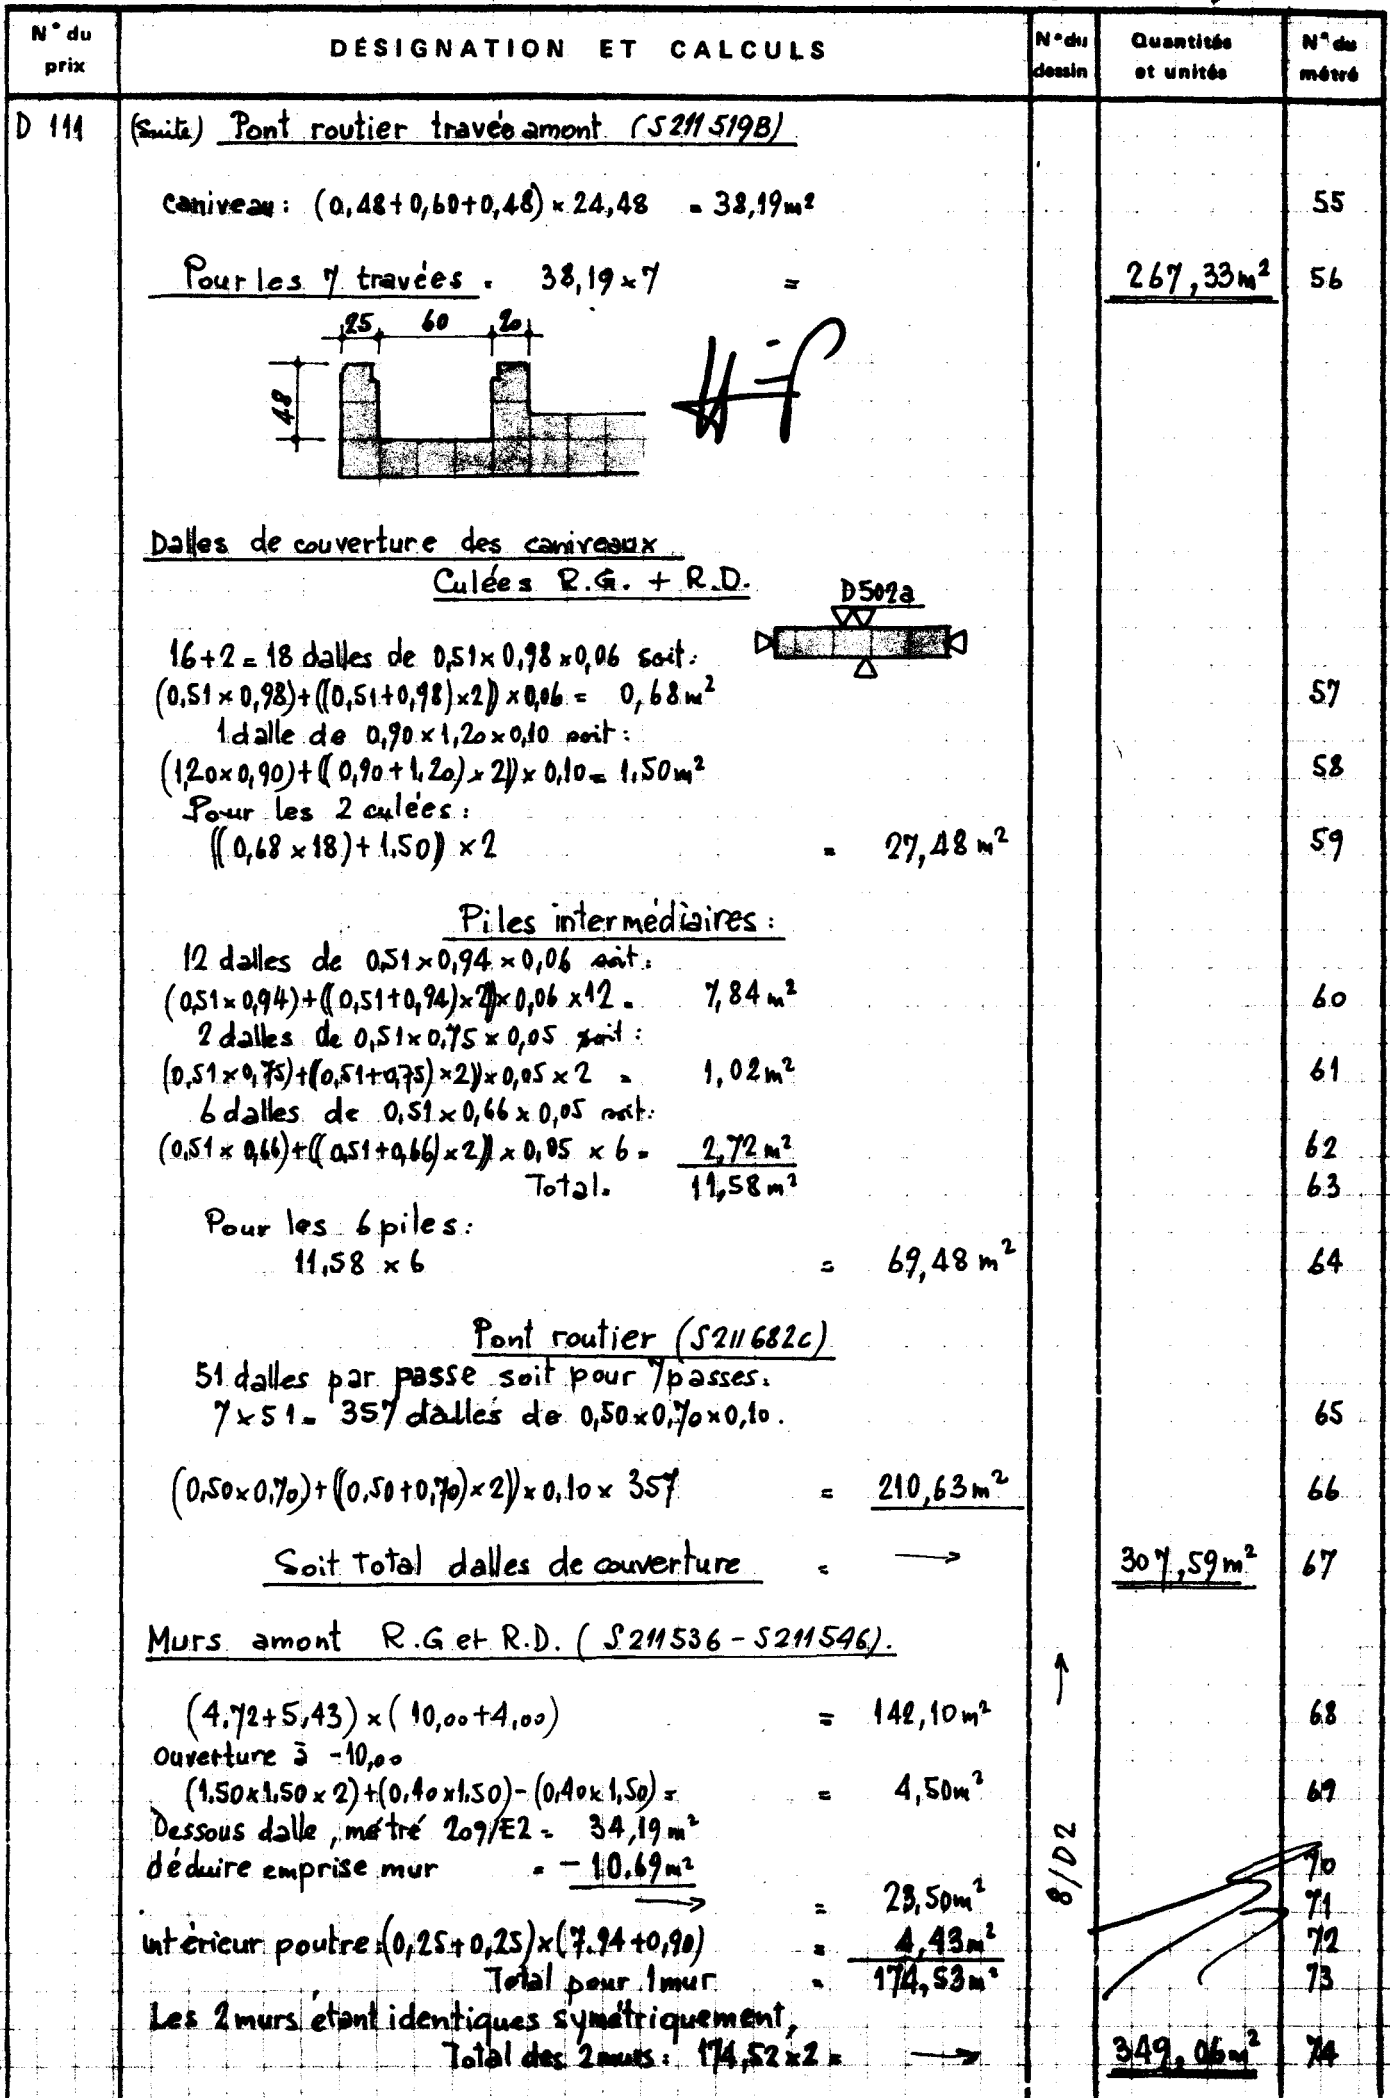 N° du prix DÉSIGNATION ET CALCULS N° du dessin Quantités et unités N° du métré
D 111 (Suite) Pont routier travée amont (S211519B)
caniveau : (0,48+0,60+0,48) × 24,48 = 38,19m² 55
Pour les 7 travées = 38,19×7 = 267,33m² 56
25 60 20
48
Dalles de couverture des caniveaux
Culées R.G. + R.D.
D502a
16+2 = 18 dalles de 0,51×0,98×0,06 soit:
(0,51×0,98)+((0,51+0,98)×2))×0,06 = 0,68m² 57
1 dalle de 0,90×1,20×0,10 soit :
(1,20×0,90)+((0,90+1,20)×2))×0,10 = 1,50m² 58
Pour les 2 culées :
((0,68×18)+1,50)) ×2 = 27,48m² 59
Piles intermédiaires :
12 dalles de 0,51×0,94×0,06 soit :
(0,51×0,94)+((0,51+0,94)×2))×0,06×12 = 7,84m² 60
2 dalles de 0,51×0,75×0,05 soit :
(0,51×0,75)+((0,51+0,75)×2))×0,05×2 = 1,02m² 61
6 dalles de 0,51×0,66×0,05 soit:
(0,51×0,66)+((0,51+0,66)×2))×0,05 × 6 = 2,72m² 62
Total = 11,58m² 63
Pour les 6 piles :
11,58 × 6 = 69,48 m² 64
Pont routier (S211682c)
51 dalles par passe soit pour 7 passes :
7×51 = 357 dalles de 0,50×0,70×0,10. 65
(0,50×0,70)+((0,50+0,70)×2))×0,10× 357 = 210,63m² 66
Soit Total dalles de couverture = → 307,59m² 67
Murs amont R.G et R.D. ( S211536 - S211546).
(4,72+5,43)×( 10,00+4,00) = 142,10m² 68
Ouverture à -10,00
(1,50×1,50×2)+(0,40×1,50)-(0,40×1,50) = = 4,50m² 69
Dessous dalle, métré 209/E2 = 34,19m²
déduire emprise mur = - 10.69m² 70
→ = 23,50m² 71
intérieur poutre :(0,25+0,25)×(7.94+0,90) = 4,43m² 72
Total pour 1 mur = 174,53m² 73
Les 2 murs étant identiques symétriquement,
Total des 2 murs : 174,52×2 = → 349,06m² 74
8/D2 →